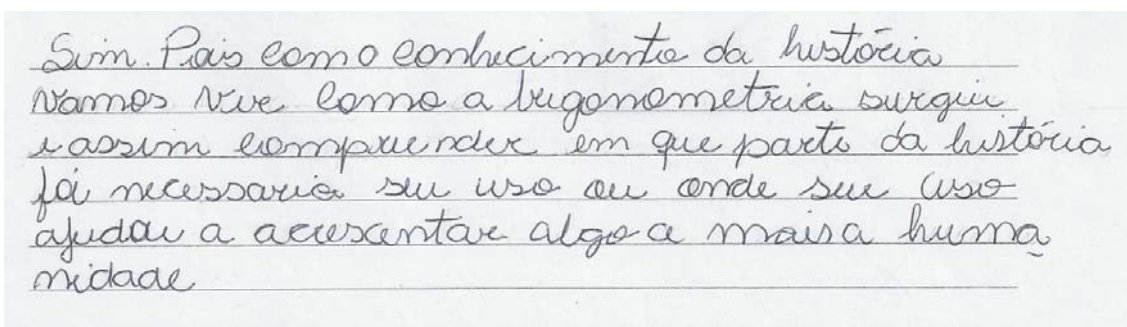 Sim. Pois com o conhecimento da história
vamos vive como a trigonometria surgiu
e assim compreender em que parte da história
foi necessario seu uso ou onde seu uso
ajudou a acrescentar algo a mais a huma
nidade